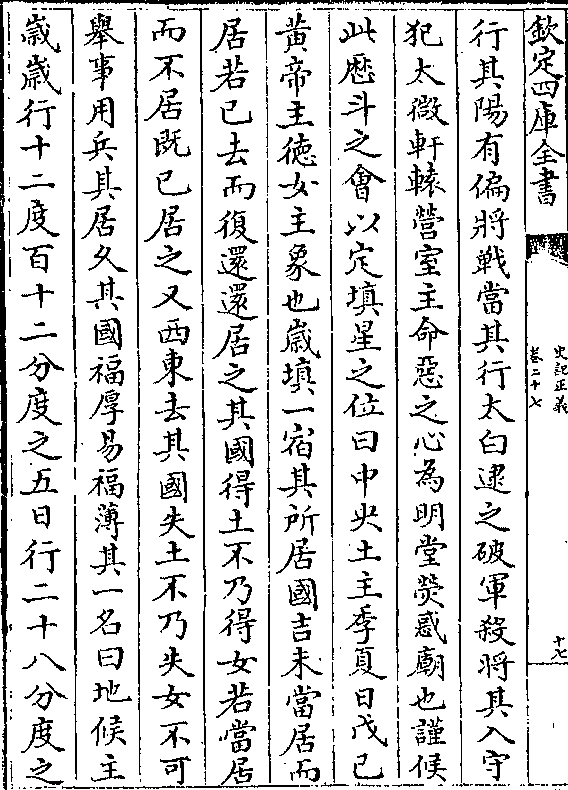 欽定四庫全書
史記正義
卷二十七
十七
行其陽有偏將戰當其行太白逮之破軍殺將其入守
犯太微軒轅營室主命惡之心為明堂熒惑廟也謹候
此歴斗之會以定填星之位曰中央土主季夏日戊己
黄帝主徳女主象也嵗填一宿其所居國吉未當居而
居若已去而復還還居之其國得土不乃得女若當居
而不居既已居之又西東去其國失土不乃失女不可
舉事用兵其居久其國福厚易福薄其一名曰地候主
嵗嵗行十二度百十二分度之五日行二十八分度之